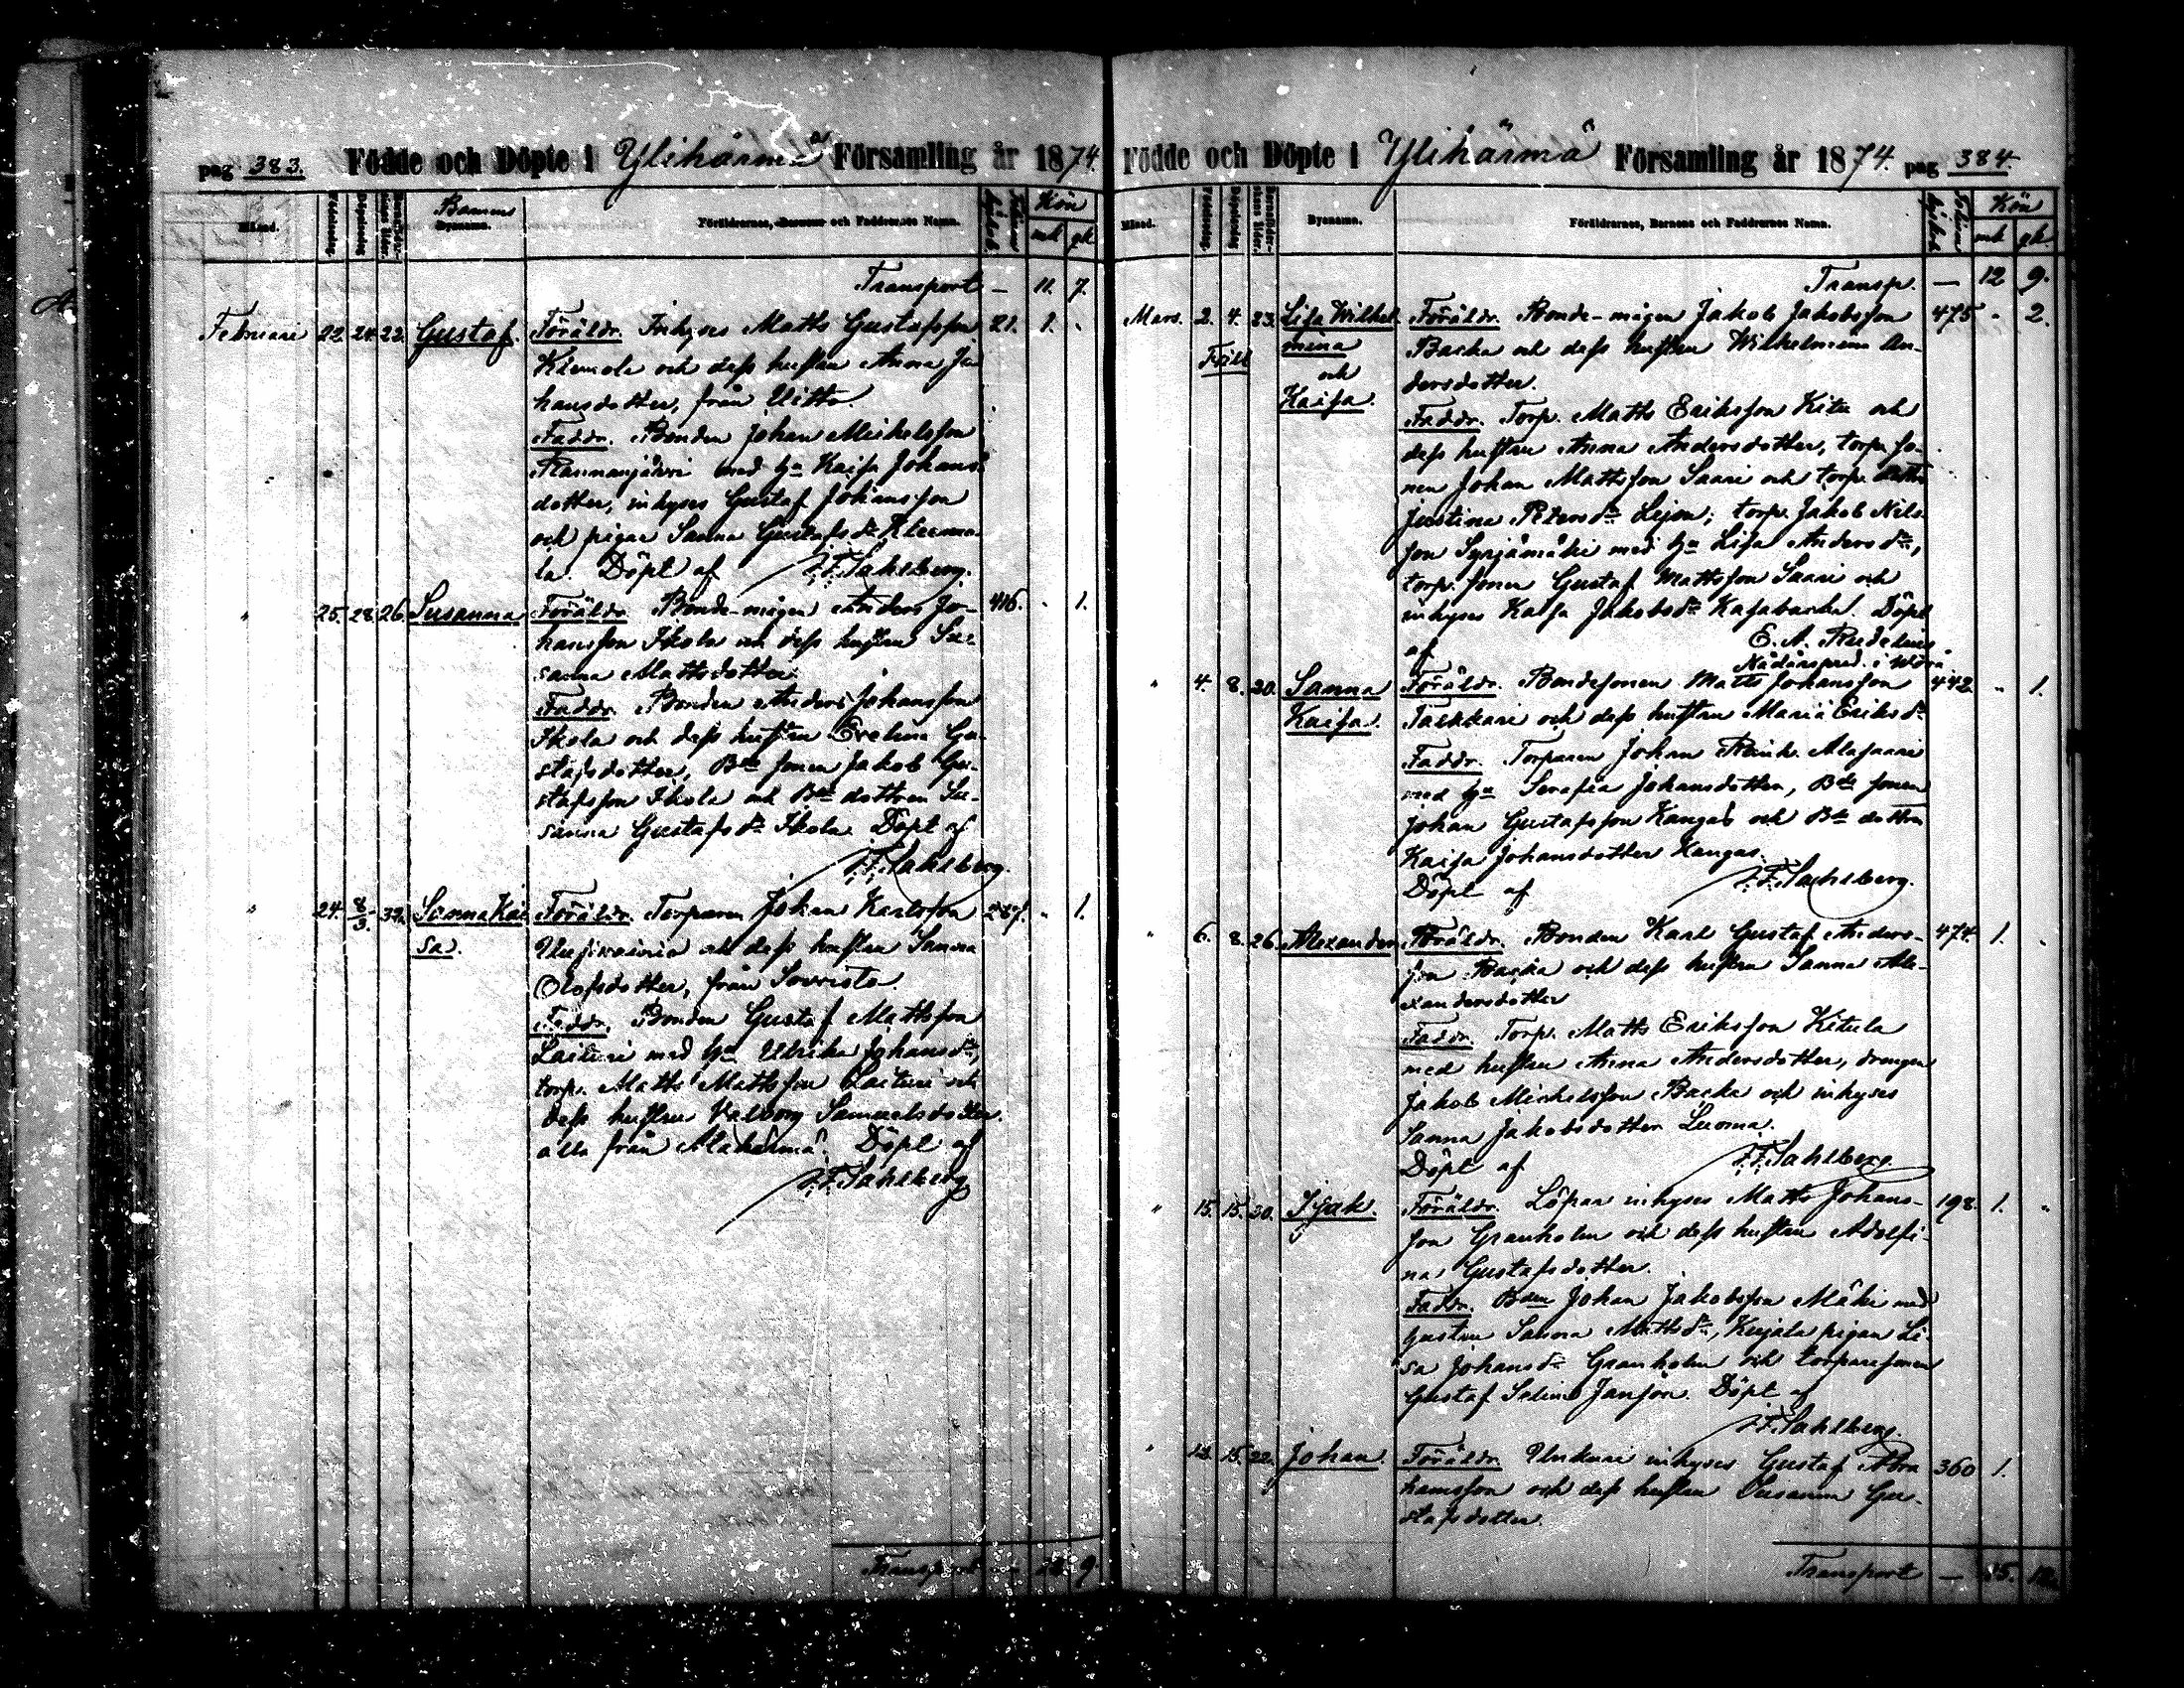 pag 383. Födde och Döpte i Ylihärmä Församling år 1874.
Månad. Födelsedag. Döpelsedag Barnföderskans ålder. Barnens Bynamn. Föräldrarnes, Barnens och Faddrarnes Namn. Kön
mk. qk.
Transport — 11. 7.
Februari 22. 24. 22. Gustaf. Föräldr. Inhyses Matts Gustafsson 21. 1. "
Klemola och dess hustru Anna Jo
hansdotter, från
Faddr. Bonden Johan Michelsson
Rannanjärvi med hu Kaisa Johans
dotter, inhyses Gustaf Johansson
och pigan Sanna Gustafsdr
la. Döpt af J. F. Sahlberg.
" 25. 28. 26. Susanna Föräldr. Bonde-mågen Anders Jo- 416. " 1.
hansson Ikola och dess hustru Su-
sanna Mattsdotter.
Faddr. Bonden Anders Johansson
Ikola och dess hustru Evelina Gu-
stafsdotter, Bde sonen Jakob Gu-
stafsson Ikola och Bde dottren Su-
sanna Gustafsdr Ikola. Döpt af
J. F. Sahlberg.
" 24. 8/3. Sanna Kai Föräldr. Torparen Johan Karlsson 287. " 1.
sa. och dess hustru Sanna
Olofsdotter, från
Faddr. Bonden Gustaf Mattsson
Laituri med hu Ulrika Johansdr,
torp. Matts Mattsson Laituri och
dess hustru Valborg Samuelsdotter.
alla från Alahärmä. Döpt af
J. F. Sahlberg
Transport — 12. 9.
Födde och Döpte i Ylihärmä Församling år 1874. pag 384.
Månad. Födelsedag. Döpelsedag Barnföderskans ålder. Bynamn. Föräldrarnes, Barnens och Faddrarnes Namn. Kön
mk. qk.
Transp. — 12 9.
Mars. 2. 4. 23. Lisa Wilhel Föräldr. Bonde-mågen Jakob Jakobsson 475 " 2.
mina Backa och dess hustru Wilhelmina An-
och dersdotter.
Kaisa. Faddr. Torp. Matts Eriksson Kitu och
dess hustru Anna Andersdotter, torp. so-
nen Johan Mattsson Saari och torp.
Justina Petersdr Lejon; torp. Jakob Nils-
son Syrjämäki med hu Lisa Andersdr,
torp. sonen Gustaf Mattsson Saari och
inhyses Kaisa Jakobsdr Kasabacka. Döpt
af E. A.
Nådårspred. i Wörå.
" 4. 8. 20. Sanna Föräldr. Bondesonen Matts Johansson 442. " 1.
Kaisa. och dess hustru Maria Eriksdr
Faddr. Torparen Johan
med hu Serafia Johansdotter, Bde sonen
Johan Gustafsson Kangas och Bde dottren
Kaisa Johansdotter Kangas.
Döpt af J. F. Sahlberg.
" 6. 8. 26. Alexander Föräldr. Bonden Karl Gustaf Anders- 474. 1. "
son Backa och dess hustru Sanna Ale-
xandersdotter
Faddr. Torp. Matts Eriksson Kitula
med hustru Anna Andersdotter, drengen
Jakob Michelsson Backa och inhyses
Sanna Jakobsdotter Luoma.
Döpt af J. F. Sahlberg
" 15. 15. 30. Isak. Föräldr. Löpar inhyses Matts Johans- 198. 1. "
son Granholm och dess hustru Adolfi-
na Gustafsdotter.
Faddr. Bden Johan Jakobsson Mäki med
hustru Sanna Mattsdr, Kujala pigan Li-
sa Johansdr Granholm och torparesonen
Gustaf Selim Jansson. Döpt af
J. F. Sahlberg.
" 15. 22. Johan. Föräldr. Unkuri inhyses Gustaf Abra 360 1.
hamsson och dess hustru Susanna Gu-
stafsdotter.
Transport — 15. 12.